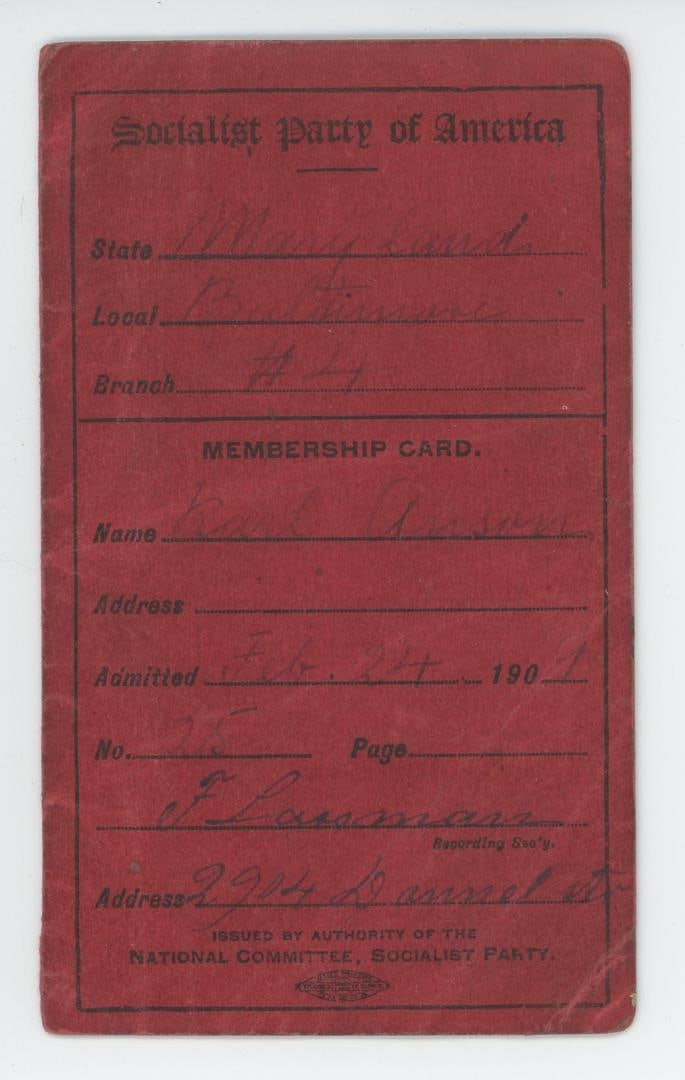 Socialist Party of America
State Maryland
Local Baltimore
Branch #4
MEMBERSHIP CARD.
Name Karl Anson
Address
Admitted Feb. 24 1909
No. 25 Page
F Lausman
Recording Sec'y.
Address 2904 Dannel str
ISSUED BY AUTHORITY OF THE
NATIONAL COMMITTEE, SOCIALIST PARTY.